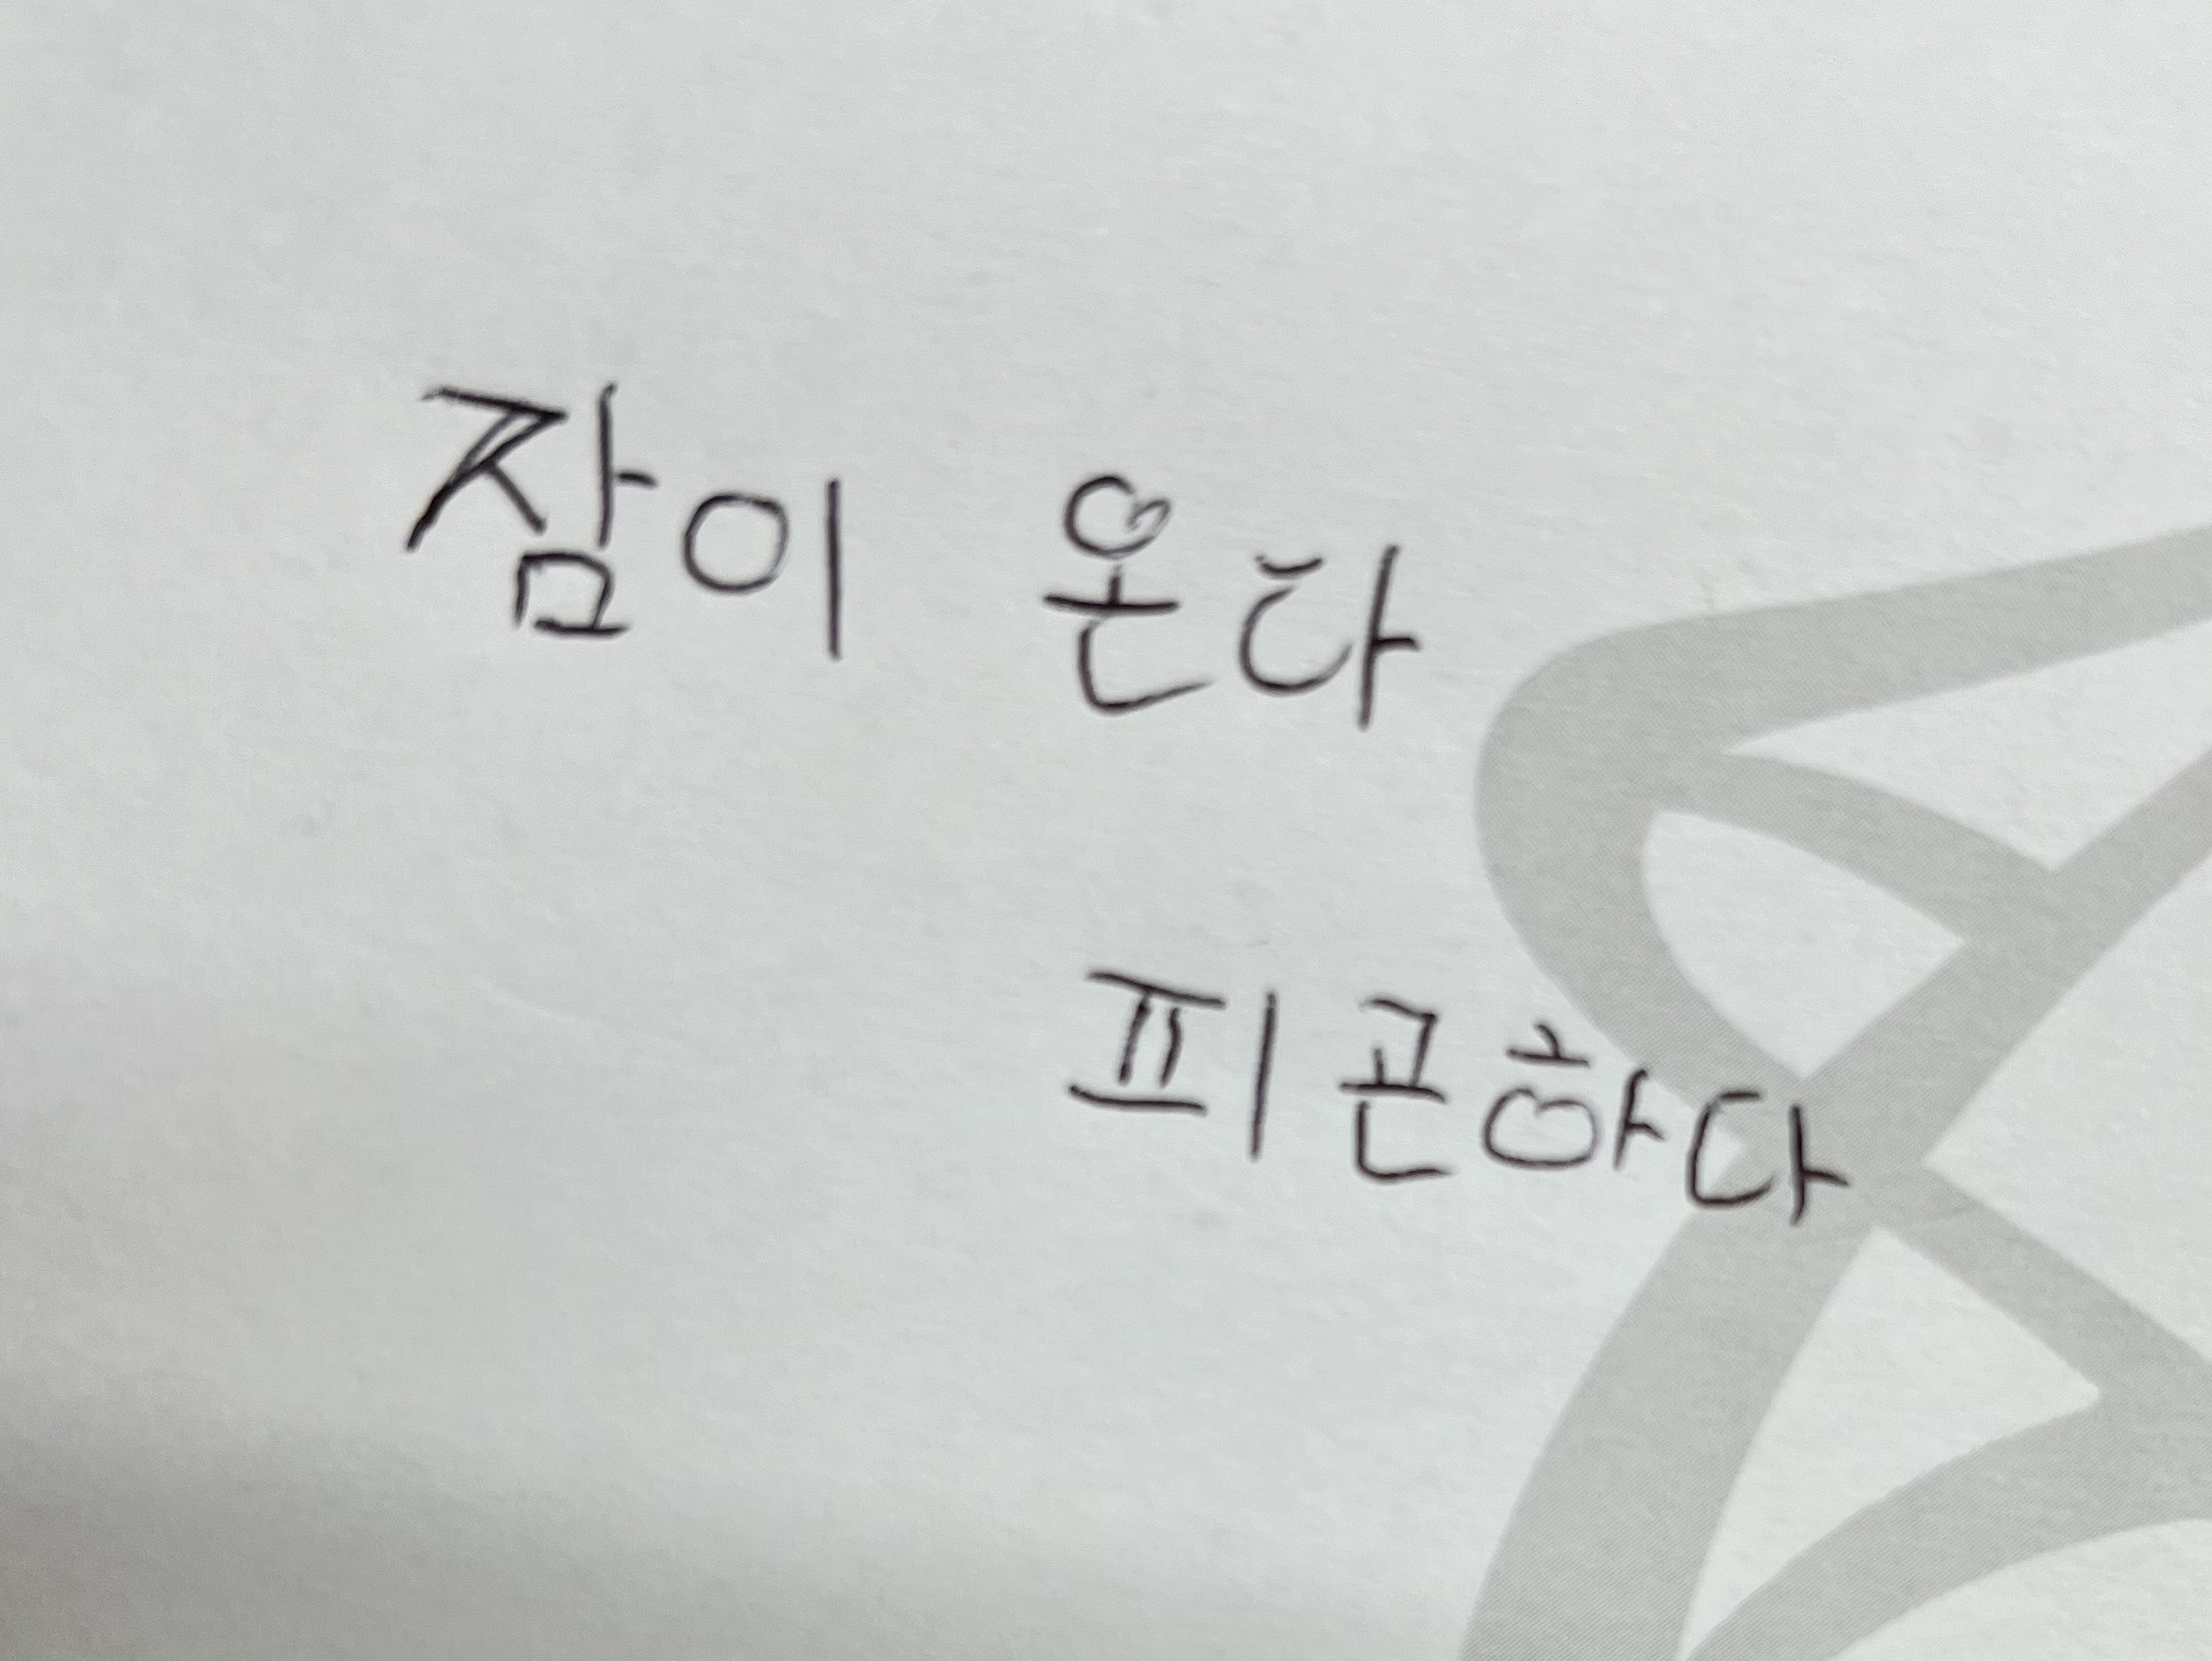 잠이 온다
피곤하다